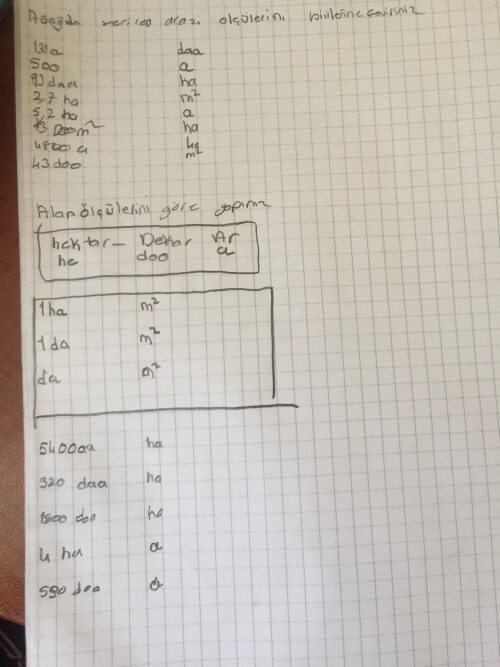 Aşağıda verilen arazi ölçülerini birbirine çeviriniz
130a daa
500 a
90 daa ha
2,7 ha m²
5,2 ha a
000m² ha
4800 a ha
43 daa m²
Alan ölçülerini göre yapınız
hektar - Dekar Ar
he daa a
1 ha m²
1 da m²
da m²
5400aa ha
320 daa ha
1500 daa ha
4 ha a
590 daa a